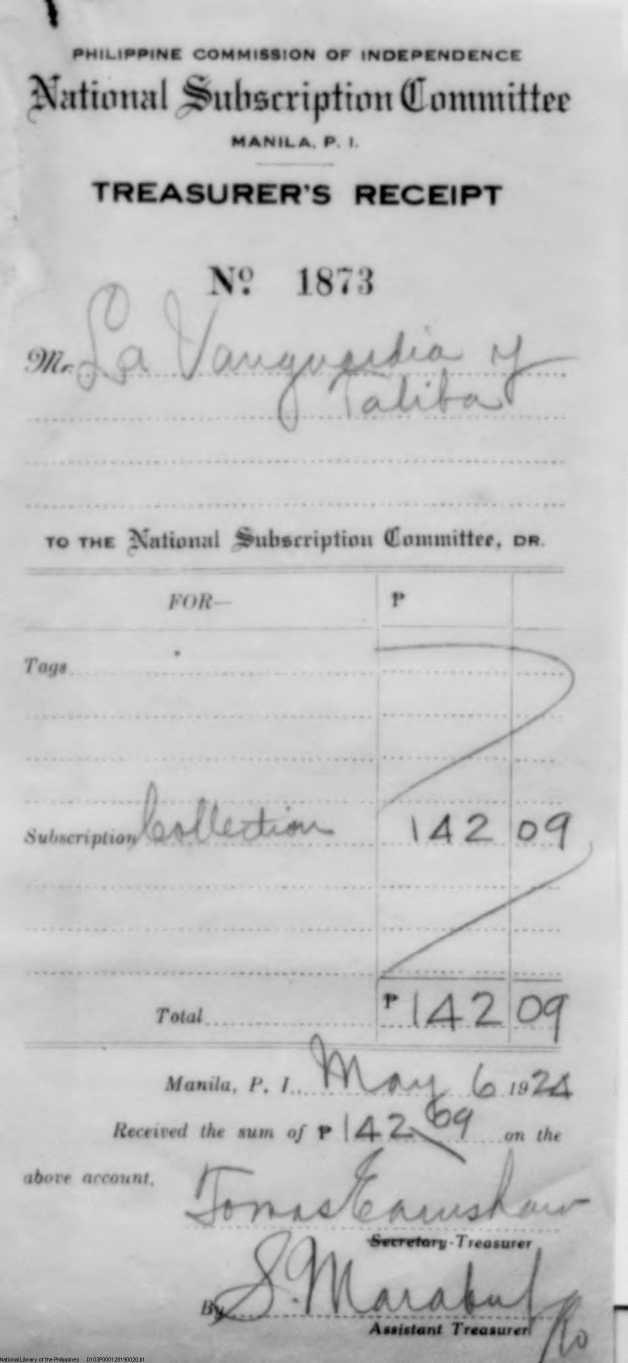 PHILIPPINE COMMISSION OF INDEPENDENCE
National Subscription Committee
MANILA, P. I.
TREASURER'S RECEIPT
Nº 1873
Mr. La Vanguardia y
Taliba
TO THE National Subscription Committee, DR.
FOR— ₱
Tags
Subscription Collection 142 09
Total ₱ 142 09
Manila, P. I., May 6 1924
Received the sum of ₱ 142 09 on the
above account.
Tomas Earnshaw
Secretary-Treasurer
By S. Marabut
Assistant Treasurer